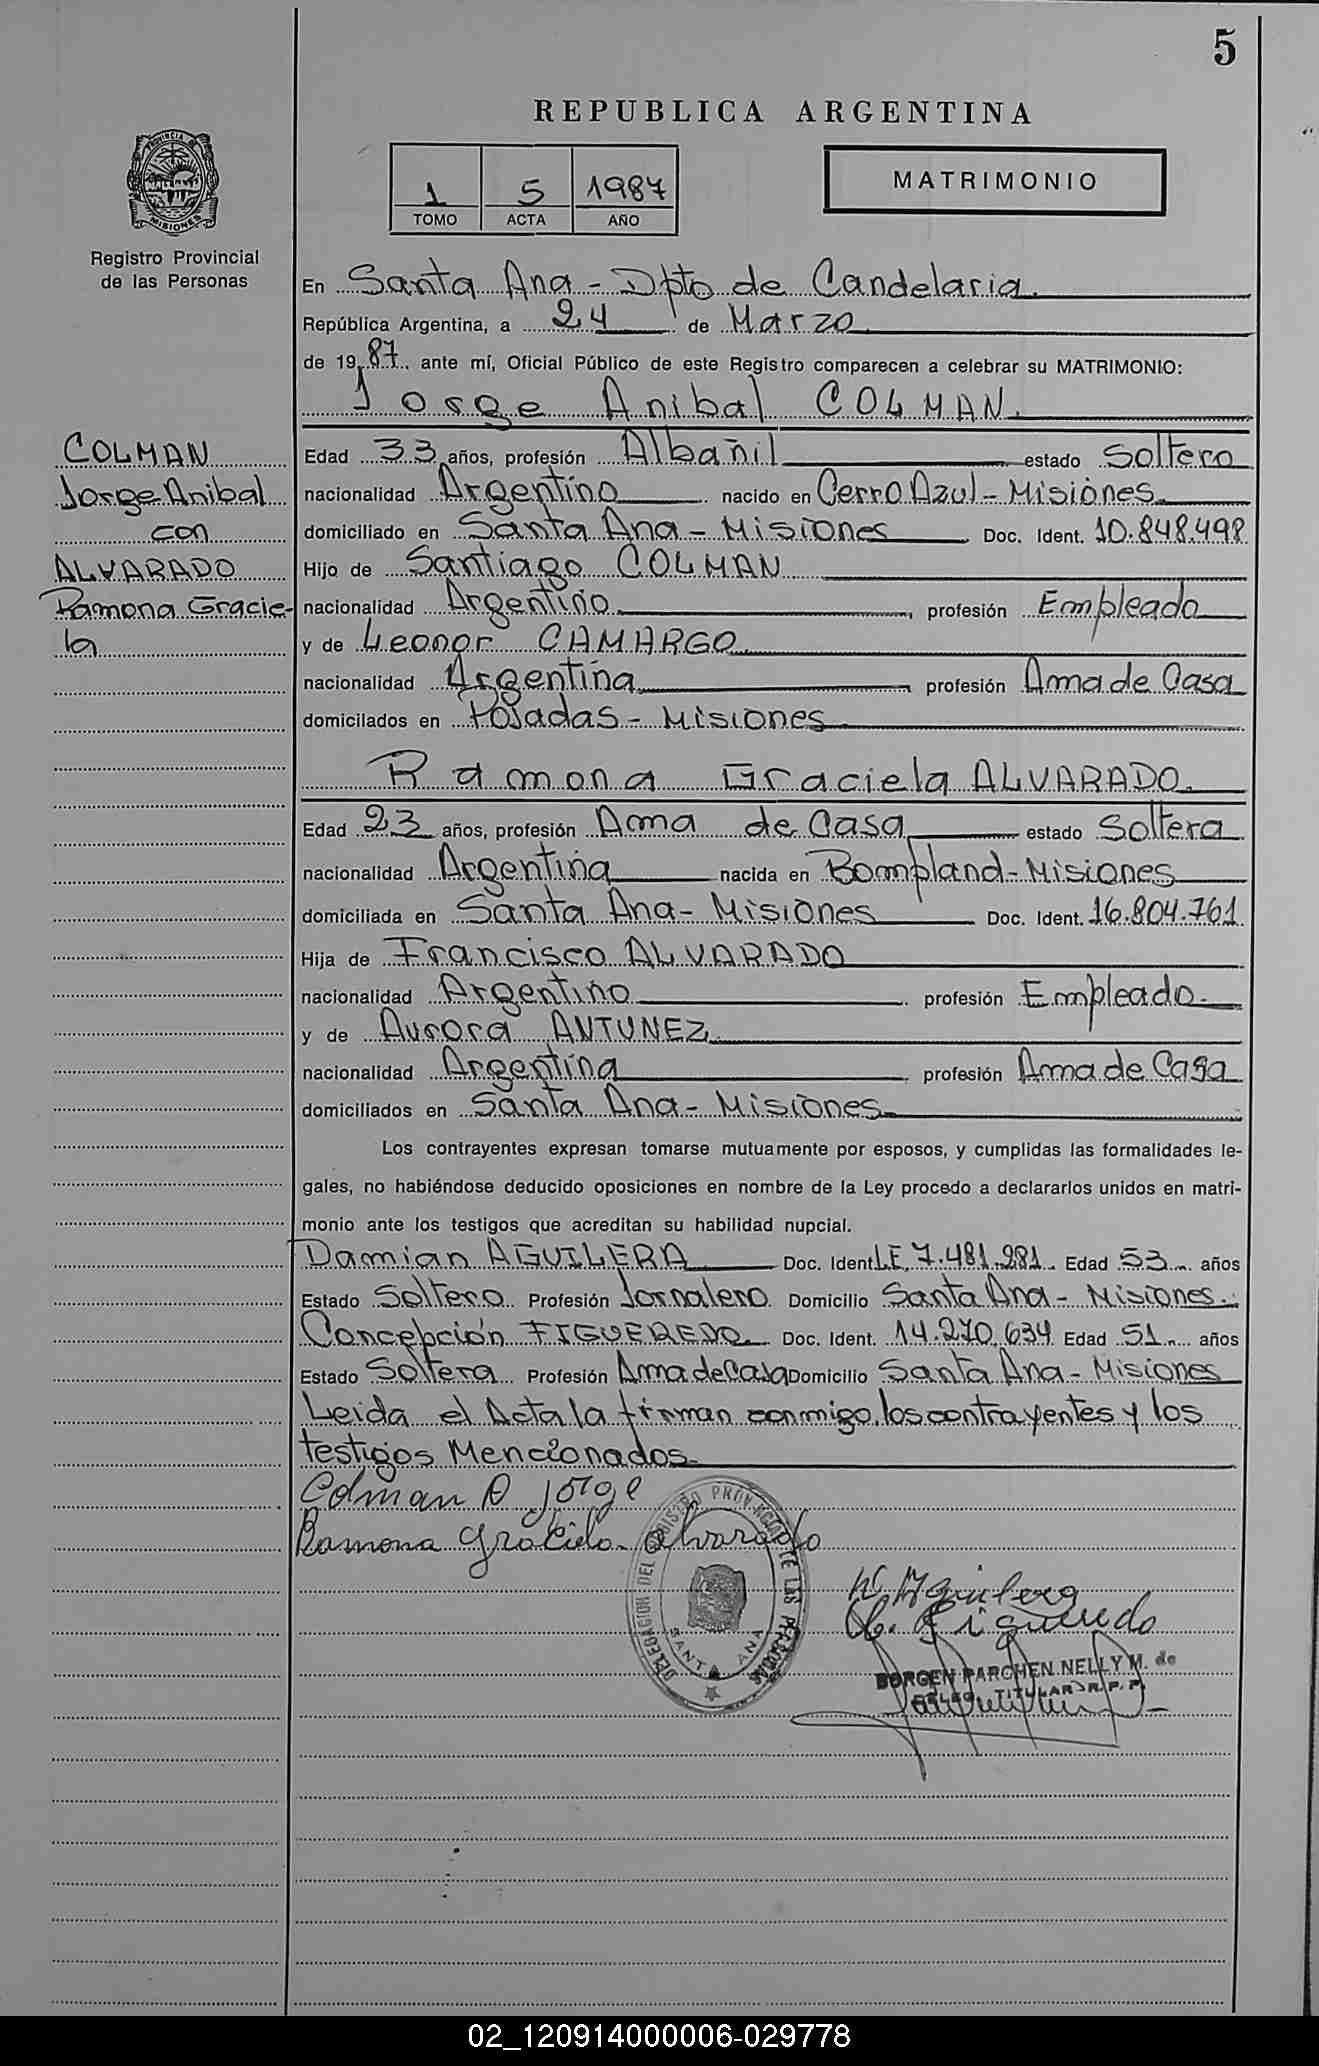 5
REPUBLICA ARGENTINA
1 5 1987
TOMO ACTA AÑO
MATRIMONIO
PROVINCIA DE
MISIONES
Registro Provincial
de las Personas
En Santa Ana - Dpto de Candelaria
República Argentina, a 24 de Marzo
de 1987 ante mí, Oficial Público de este Registro comparecen a celebrar su MATRIMONIO:
Jorge Anibal COLMAN
COLMAN
Jorge Anibal
con
ALVARADO
Ramona Gracie-
la
Edad 33 años, profesión Albañil estado Soltero
nacionalidad Argentino nacido en Cerro Azul - Misiones
domiciliado en Santa Ana - Misiones Doc. Ident. 10.848.498
Hijo de Santiago COLMAN
nacionalidad Argentino, profesión Empleado
y de Leonor CAMARGO
nacionalidad Argentina profesión Ama de Casa
domicilados en Posadas - Misiones
Ramona Graciela ALVARADO
Edad 23 años, profesión Ama de Casa estado Soltera
nacionalidad Argentina nacida en Bompland - Misiones
domiciliada en Santa Ana - Misiones Doc. Ident. 16.804.761
Hija de Francisco ALVARADO
nacionalidad Argentino profesión Empleado
y de Aurora ANTUNEZ
nacionalidad Argentina profesión Ama de Casa
domiciliados en Santa Ana - Misiones
Los contrayentes expresan tomarse mutuamente por esposos, y cumplidas las formalidades le-
gales, no habiéndose deducido oposiciones en nombre de la Ley procedo a declararlos unidos en matri-
monio ante los testigos que acreditan su habilidad nupcial.
Damian AGUILERA Doc. Ident LE. 7.481.281 Edad 53 años
Estado Soltero Profesión Jornalero Domicilio Santa Ana - Misiones
Concepción FIGUEREDO Doc. Ident. 14.270.634 Edad 51 años
Estado Soltera Profesión Ama de Casa Domicilio Santa Ana - Misiones
Leida el Acta la firman conmigo, los contrayentes y los
testigos Mencionados
Colman A Jorge
Ramona Graciela Alvarado
DELEGACION DEL REGISTRO PROVINCIAL DE LAS PERSONAS
SANTA ANA
Aguilera
C. Figueredo
BORGEN PARCHEN NELLY M. de
DELEG. TITULAR R. P. P.
02_120914000006-029778